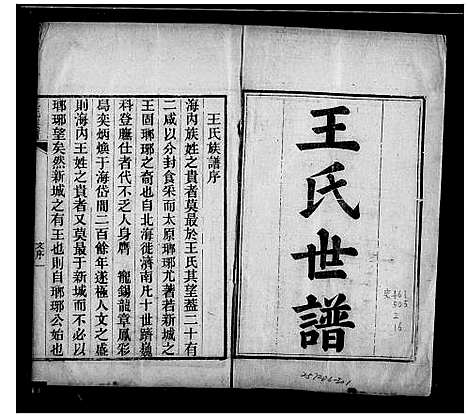 王氏世譜
王氏族譜序
海內族姓之貴者莫最於王氏其望蓋二十有
二咸以分封食采而太原瑯琊尤著若新城之
王固瑯琊之裔也自北海徙濟南凡十世躋巍
科登膴仕者代不乏人身膺　寵錫龍章鳳彩
舄奕炳煥于海岱間二百餘年遂極人文之盛
則海內王姓之貴者又莫最于新城而不必以
瑯琊望矣然新城之有王也則自瑯琊公始也